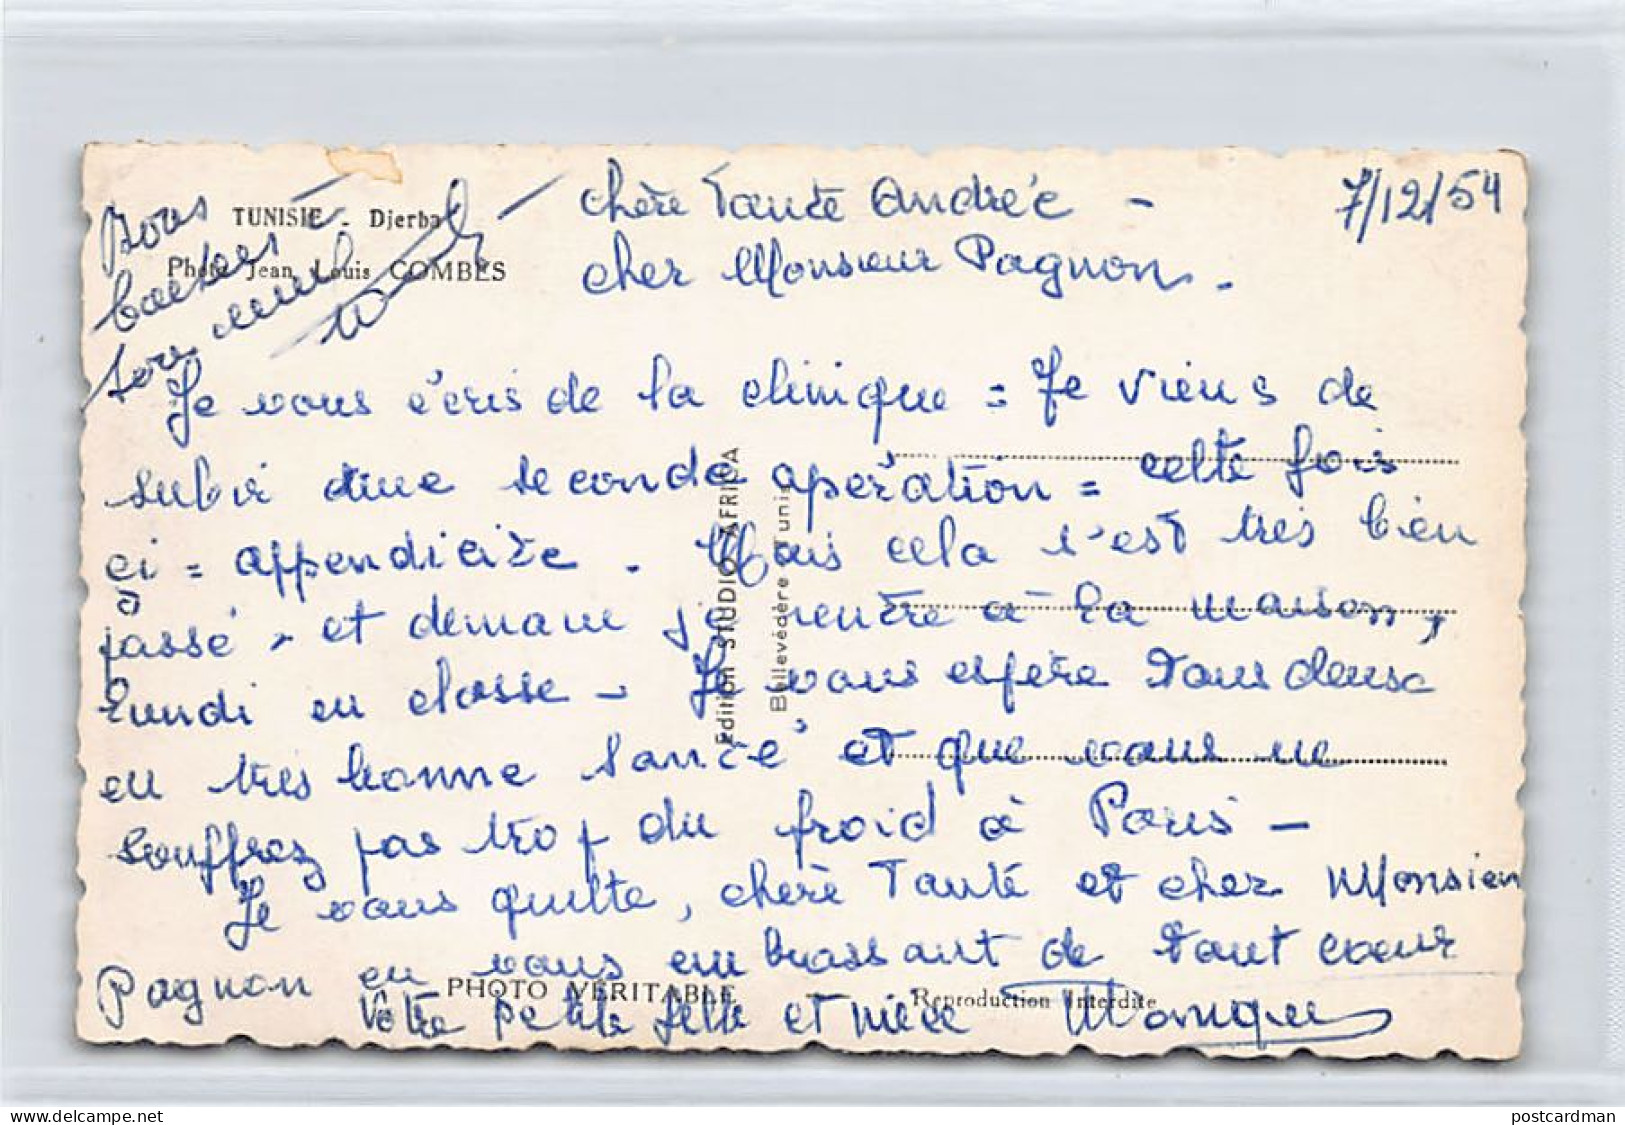 7/12/54
TUNISIE - Djerba
Photo Jean Louis COMBES
Bons
baisers
chère Tante Andrée -
cher Monsieur Pagnon.
Je vous écris de la clinique = Je viens de
subir une seconde opération = cette fois
ci = appendicite. Mais cela s'est très bien
passé, et demain je rentre à la maison,
lundi en classe - Je vous espère tous deux
en très bonne santé et que vous ne
souffrez pas trop du froid à Paris -
Je vous quitte, chère Tante et cher Monsieur
Pagnon en vous embrassant de tout coeur
Votre petite fille et nièce Monique
Edition STUDIO AFRICA
Bellevédère Tunis
PHOTO VÉRITABLE
Reproduction Interdite
postcardman